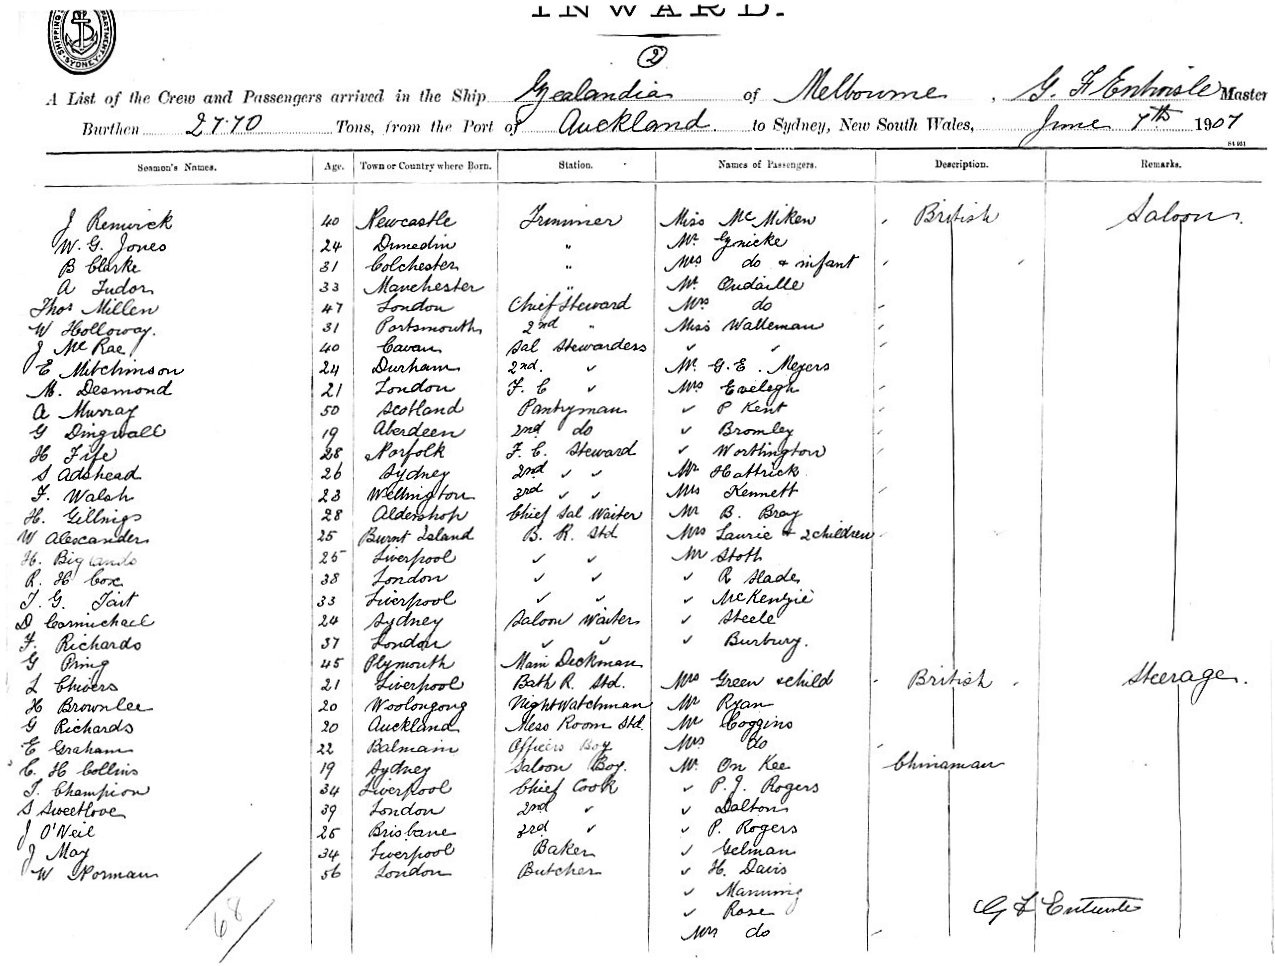 INWARD.
SHIPPING DEPARTMENT SYDNEY
2
A List of the Crew and Passengers arrived in the Ship Zealandia of Melbourne, G. F. Entwisle Master
Burthen 2770 Tons, from the Port of Auckland to Sydney, New South Wales, June 7th 1907
Seamen's Names. Age. Town or Country where Born. Station. Names of Passengers. Description. Remarks.
J Renwick 40 Newcastle Trimmer Miss McMiken British Saloon.
W. G. Jones 24 Dunedin " Mr
B Clarke 31 Colchester " Mrs do & infant
A Tudor 33 Manchester " Mr Oudaille
Thos Millen 47 London Chief Steward Mrs do
W Holloway. 31 Portsmouth 2nd " Miss Walleman
J McRae 40 Cavan Sal Stewardess ✓ ✓
E Mitchinson 24 Durham 2nd. ✓ Mr G. E. Meyers
M. Desmond 21 London F. C ✓ Mrs Evelegh
A Murray 50 Scotland Pantryman ✓ P Kent
G Dingwall 19 Aberdeen 2nd do ✓ Bromley
H Fife 28 Norfolk F. C. Steward ✓ Worthington
S Adshead 26 Sydney 2nd ✓ ✓ Mr Hattrick
F. Walsh 23 Wellington 3rd ✓ ✓ Mrs Kennett
H. Gillnigs 28 Aldershop Chief Sal Waiter Mr B. Bray
W Alexander 25 Burnt Island B. R. Std Mrs Laurie & 2 children
H. Biglands 25 Liverpool ✓ ✓ Mr Stott
R. H Cox 38 London ✓ ✓ ✓ R Slade
T. G. Tait 33 Liverpool ✓ ✓ ✓ McKenzie
D Carmichael 24 Sydney Saloon Waiter ✓ Steele
F. Richards 37 London ✓ ✓ ✓ Burbury.
G Pring 45 Plymouth Main Deckman
L Chivers 21 Liverpool Bath R. Std. Mrs Green & child British Steerage.
H Brownlee 20 Woolongong Night Watchman Mr Ryan
G Richards 20 Auckland Mess Room Std. Mr Coggins
E Graham 22 Balmain Officers Boy Mrs do
C. H Collins 19 Sydney Saloon Boy. Mr On Kee Chinaman
T. Champion 34 Liverpool Chief Cook ✓ P. J. Rogers
S Sweetlove 39 London 2nd ✓ ✓ Dalton
J O'Neil 25 Brisbane 3rd ✓ ✓ P. Rogers
J May 34 Liverpool Baker ✓ Gelman
W Norman 56 London Butcher ✓ H. Davis
✓ Manning
68 ✓ Rose G F Entwisle
Mrs do